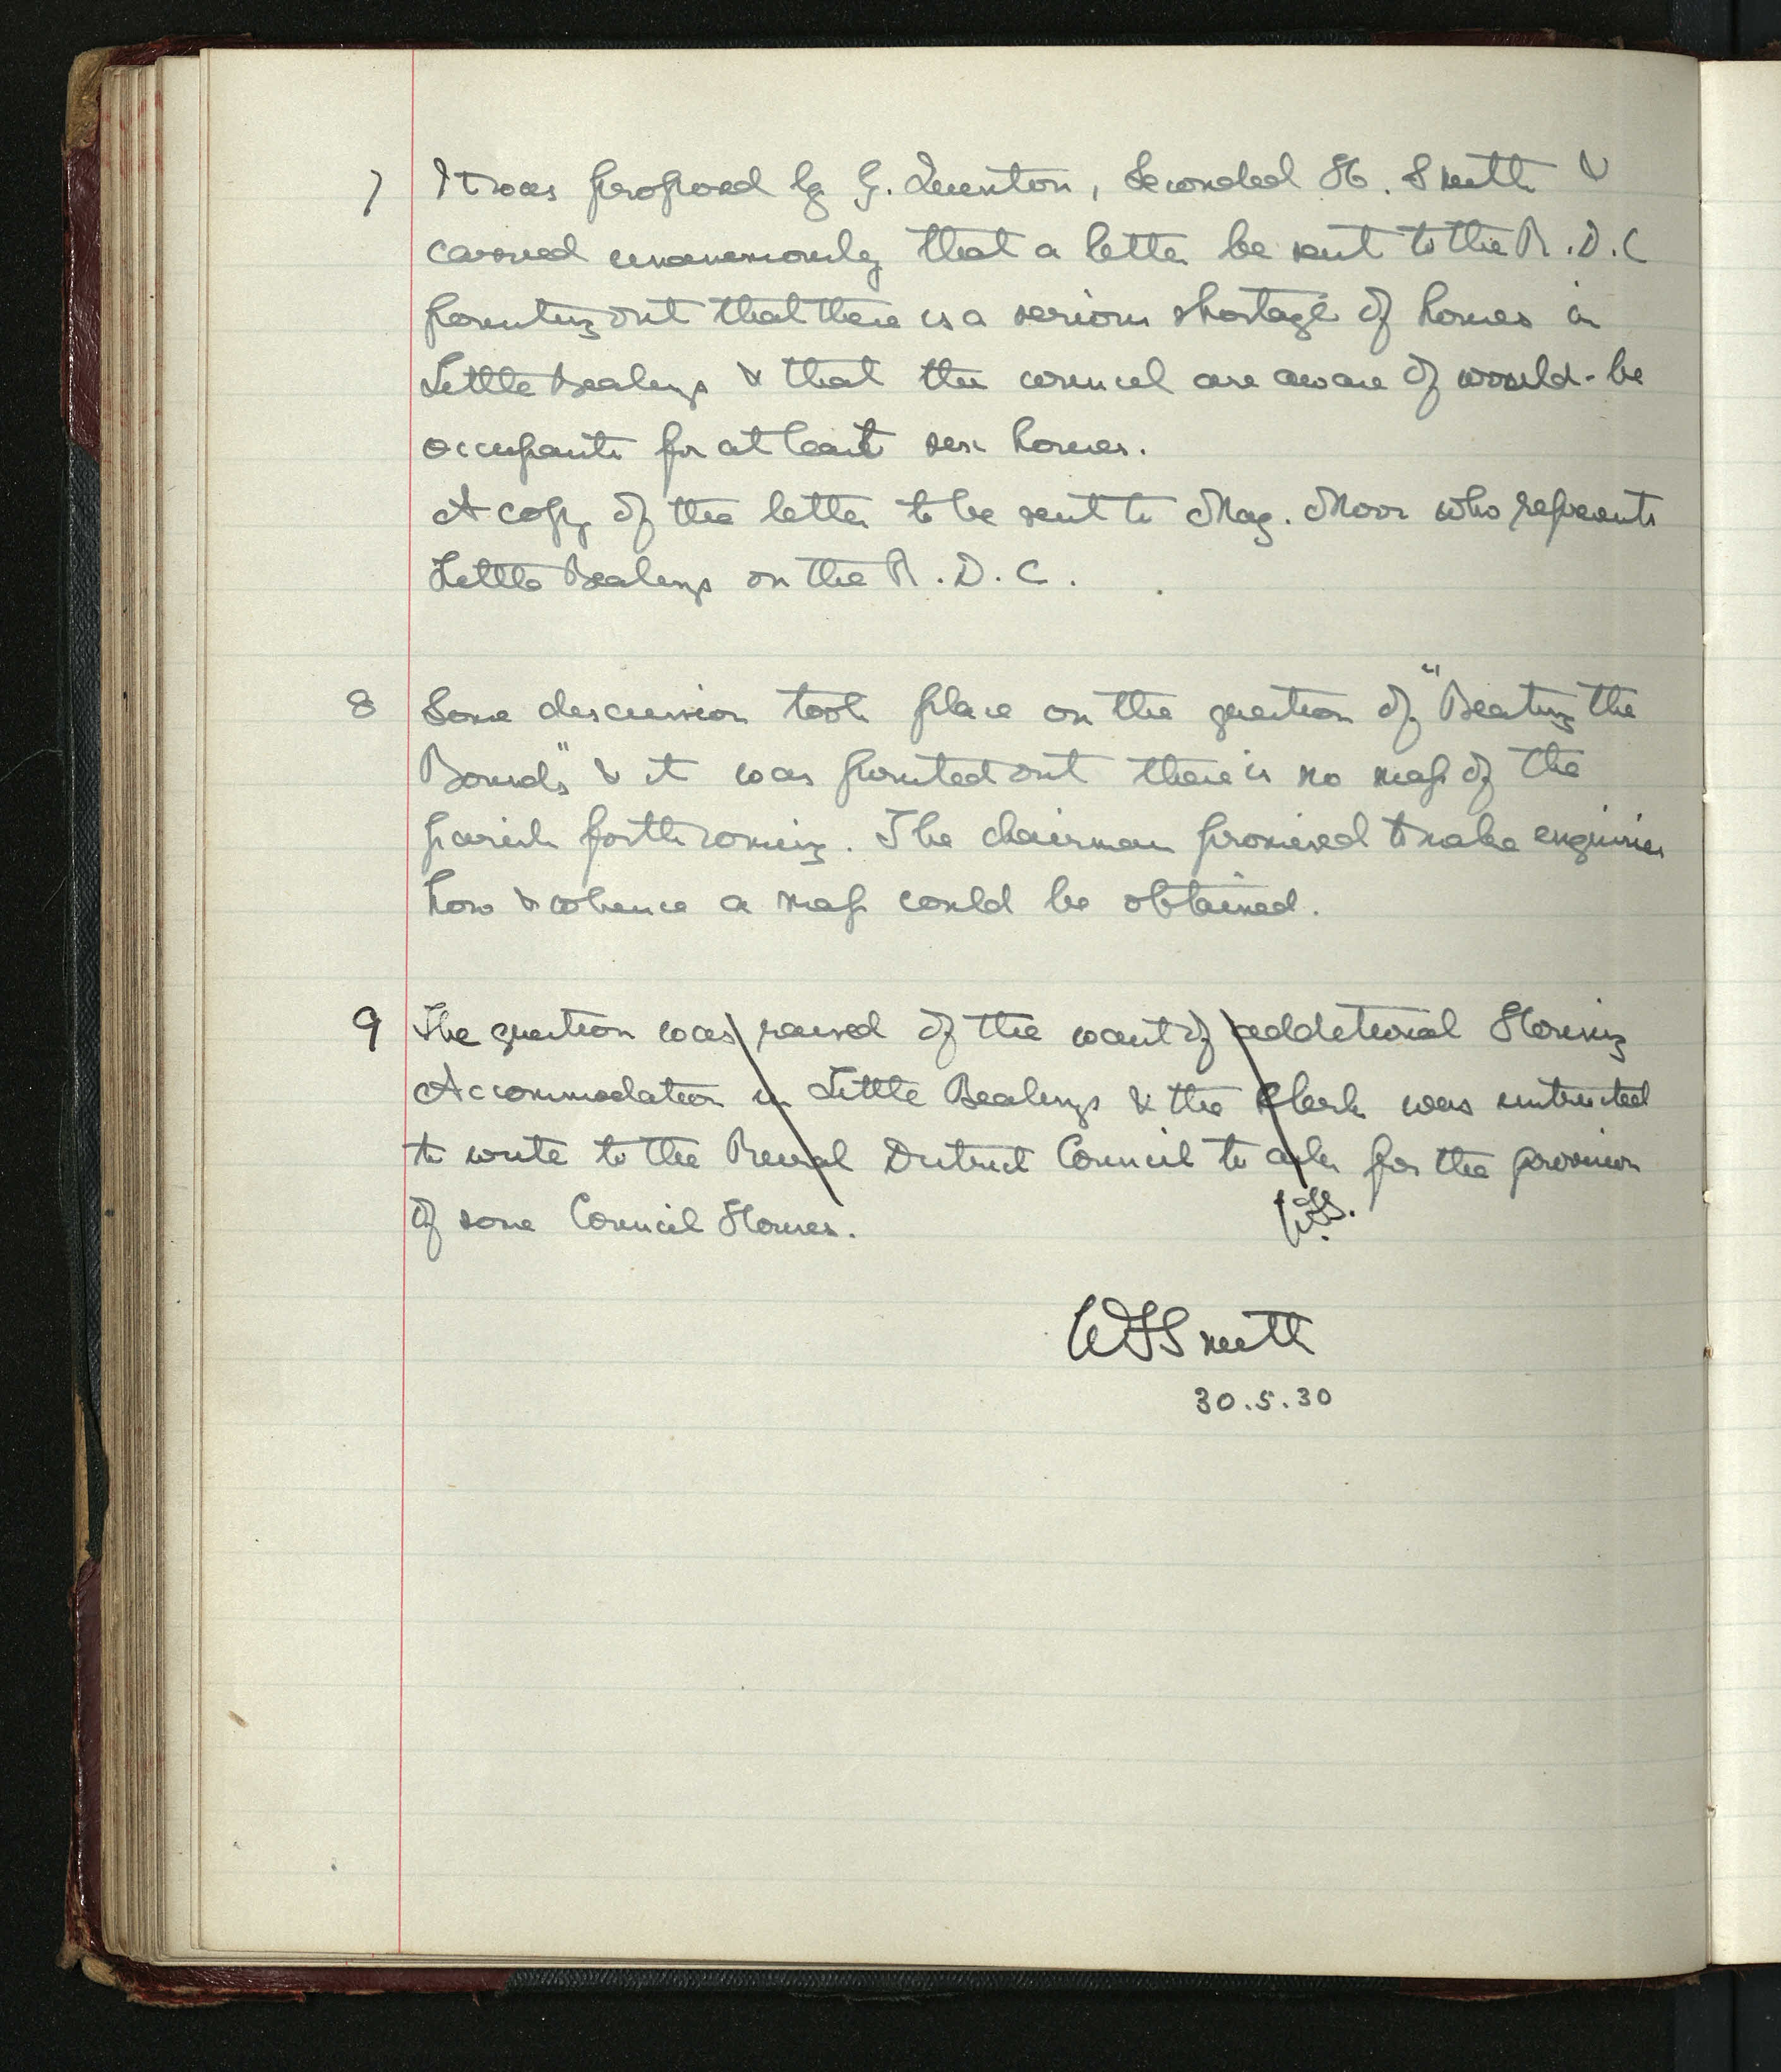 7 It was proposed by G. Quinton, Seconded H. Smith &
carried unanimously that a letter be sent to the R.D.C
pointing out that there is a serious shortage of houses in
Little Bealings & that the council are aware of would-be
occupants for at least six houses.
A copy of the letter to be sent to Maj. Moor who represents
Little Bealings on the R.D.C.
8 Some discussion took place on the question of "Beating the
Bounds" & it was pointed out there is no map of the
parish forthcoming. The chairman promised to make enquiries
how & whence a map could be obtained.
9 The question was raised of the want of additional Housing
Accommodation in Little Bealings & the Clerk was instructed
to write to the Rural District Council to ask for the provision
of some Council Houses.
WFS.
WFSmith
30.5.30